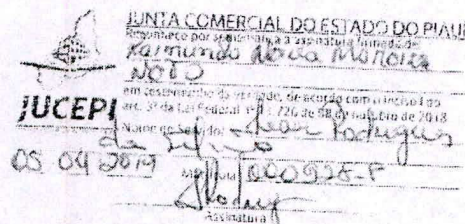 JUNTA COMERCIAL DO ESTADO DO PIAUÍ
Reconheço por semelhança a assinatura firmada de
Raimundo Moreira
NETO
em testemunho da verdade, de acordo com o inciso I do
art. 3º da Lei Federal nº 13.726 de 08 de outubro de 2018
JUCEPI
Nome do Servidor Rodrigues
da Silva
05 04 2019 Matrícula 000928-P
Assinatura